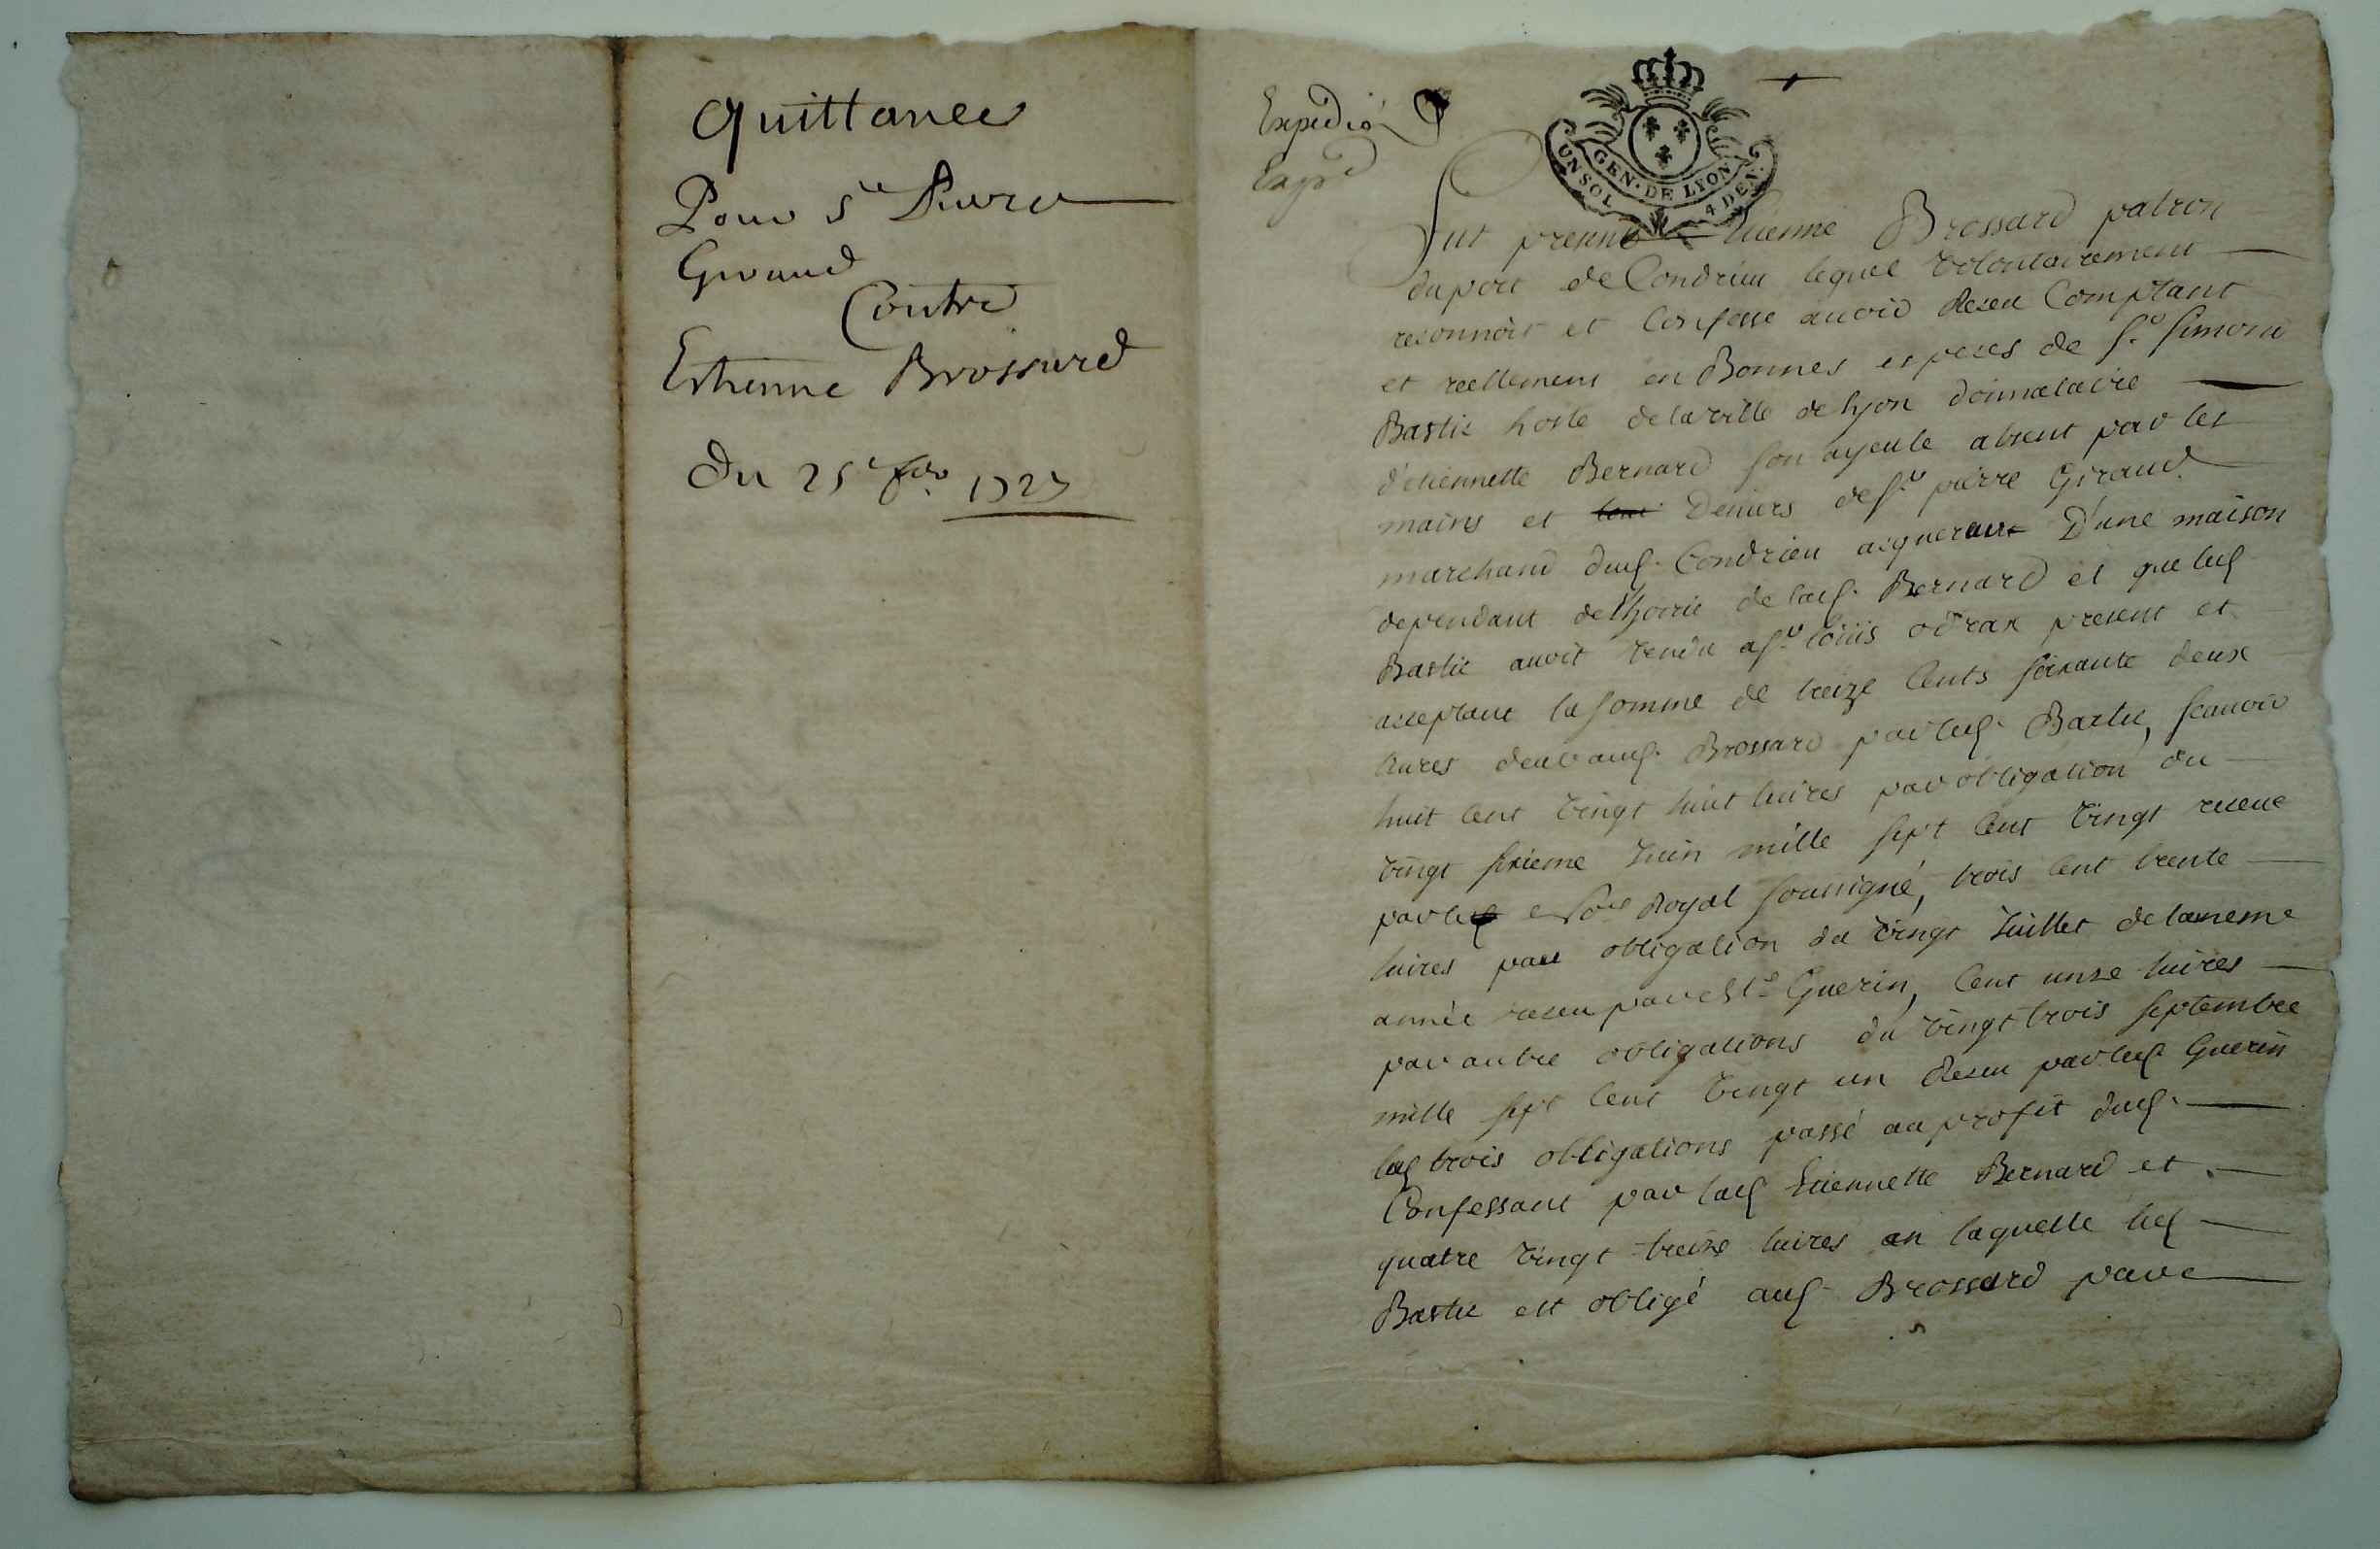 Quittance
Pour Sr Pierre
Giraud
Contre
Estienne Brossard
Du 25e 1727
Expedié
GEN·DE LYON
UN SOL 4 DEN.
fut present Etienne Brossard patron
du port de Condrieu lequel volontairement
reconnoit et Confesse auoir Receu Comptant
et reellement en Bonnes especes de Sr Simond
Bastie hoste de la ville de lyon donnataire
d'etiennette Bernard son ayeule absent par les
mains et Deniers de Sr pierre Giraud
marchand dud. Condrieu acquereur D'une maison
dependant de l'hoirie de lad. Bernard et que led
Bastie auoit vendu a Sr loüis odrax present et
acceptant la somme de treize Cents soixante deux
liures deub aud. Brossard par led. Bastie, scauoir
huit Cent vingt huit liures par obligation du
vingt sixieme Juin mille sept Cent vingt receue
par le Royal soussigné, trois Cent trente
liures par obligation du vingt Juillet de la meme
année receu par Me Guerin, Cent unze liures
par autre obligations du vingt trois septembre
mille sept Cent vingt un Receu par led. Guerin
trois obligations passé au profit dud.
Confessant par lad Etiennette Bernard et
quatre vingt treize liures en laquelle led
Bastie est obligé aud. Brossard par